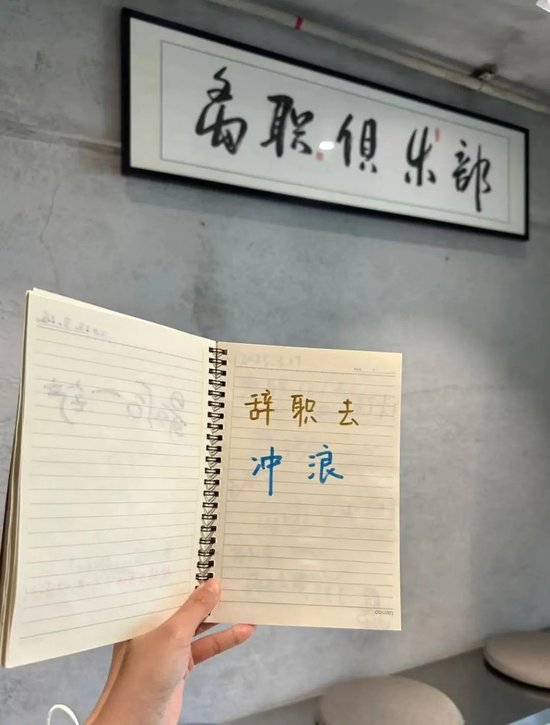 离职俱乐部
辞职去
冲浪